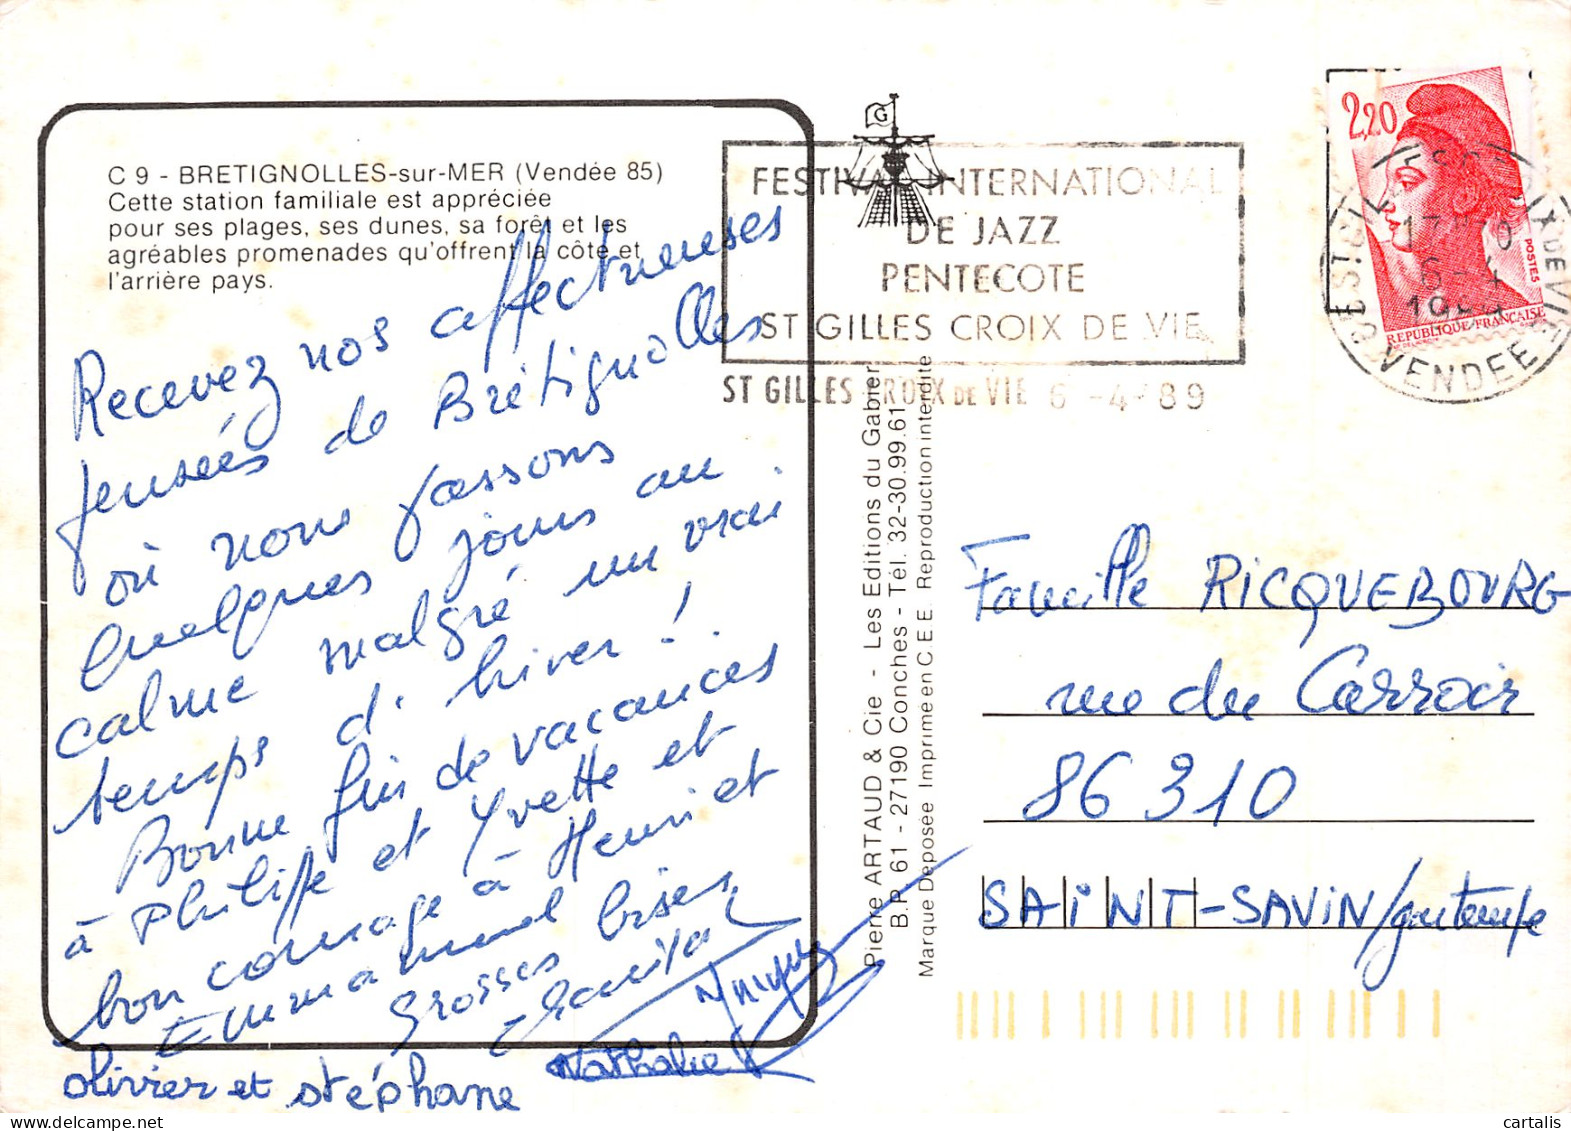 C 9 - BRETIGNOLLES-sur-MER (Vendée 85)
Cette station familiale est appréciée
pour ses plages, ses dunes, sa forêt et les
agréables promenades qu'offrent la côte et
l'arrière pays.
Recevez nos affectueuses
pensées de Brétignolles
où nous passons
quelques jours au
calme malgré un vrai
temps d'hiver !
Bonne fin de vacances
à Philippe et Yvette et
bon courage à Henri et
Emmanuel
Grosses bises
Nathalie
olivier et stéphane
G
FESTIVAL INTERNATIONAL
DE JAZZ
PENTECOTE
ST GILLES CROIX DE VIE
ST GILLES CROIX DE VIE 6 -4-89
2,20
POSTES
REPUBLIQUE FRANÇAISE
VENDEE
Pierre ARTAUD & Cie - Les Editions du Gabier
B.P. 61 - 27190 Conches - Tél. 32-30.99.61
Marque Déposée Imprimé en C.E.E. Reproduction interdite
Famille RICQUEBOURG
rue du Carroir
86310
SAINT-SAVIN/gartempe
cartalis